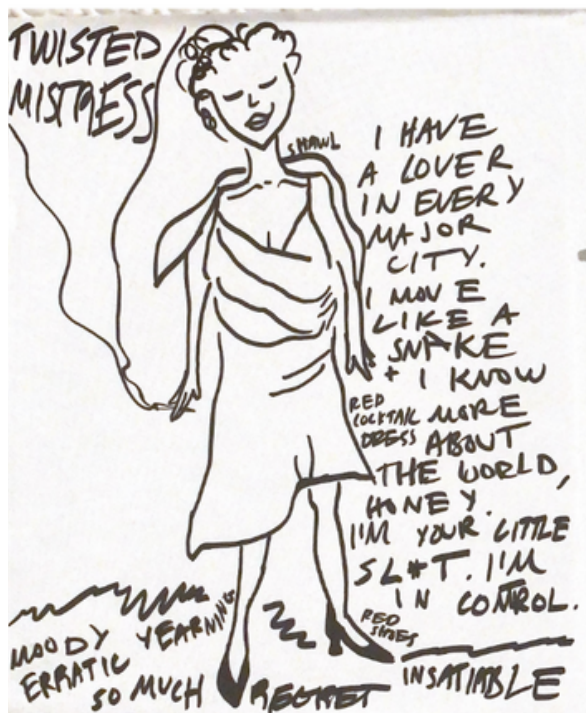 TWISTED
MISTRESS
SHAWL
I HAVE
A LOVER
IN EVERY
MAJOR
CITY.
I MOVE
LIKE A
SNAKE
+ I KNOW
MORE
ABOUT
THE WORLD,
HONEY.
I'M YOUR LITTLE
SL*T. I'M
IN CONTROL.
RED
COCKTAIL
DRESS
RED
SHOES
MOODY YEARNING
ERRATIC
SO MUCH REGRET
INSATIABLE